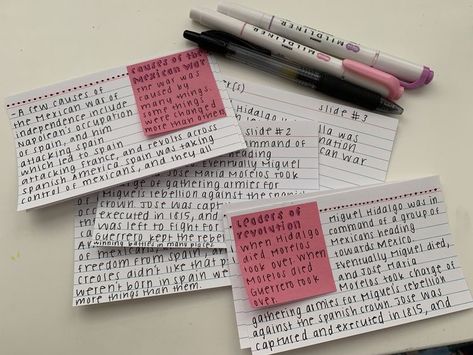 MILDLINER
MILDLINER
causes of the
Mexican War
the war was
caused by
many things.
some things
were changed
more than other
A few causes of
the Mexican war of
independence include
Napoleon's occupation
of spain, and him
attacking spain
which led to spain
attacking france, and revolts across
spanish America. spain was taking
control of mexicans, and they all
slide #3
slide #2
command of
heading
eventually Miguel
Jose Maria Morelos took
of gathering armies for
Miguel's rebellion against the spanish
crown. Jose was captured
executed in 1815, and
was left to fight
Guerrero kept the
winning battles in many places
freedom from spain,
creoles didn't like that
weren't born in spain
more things than them.
Leaders of
revolution
when Hidalgo
died Morelos
took over. when
Morelos died
Guerrero took
over.
Miguel Hidalgo was in
command of a group of
Mexicans heading
towards Mexico.
Eventually Miguel died,
and Jose Maria
Morelos took charge of
gathering armies for Miguel's rebellion
against the spanish crown. Jose was
captured and executed in 1815, and